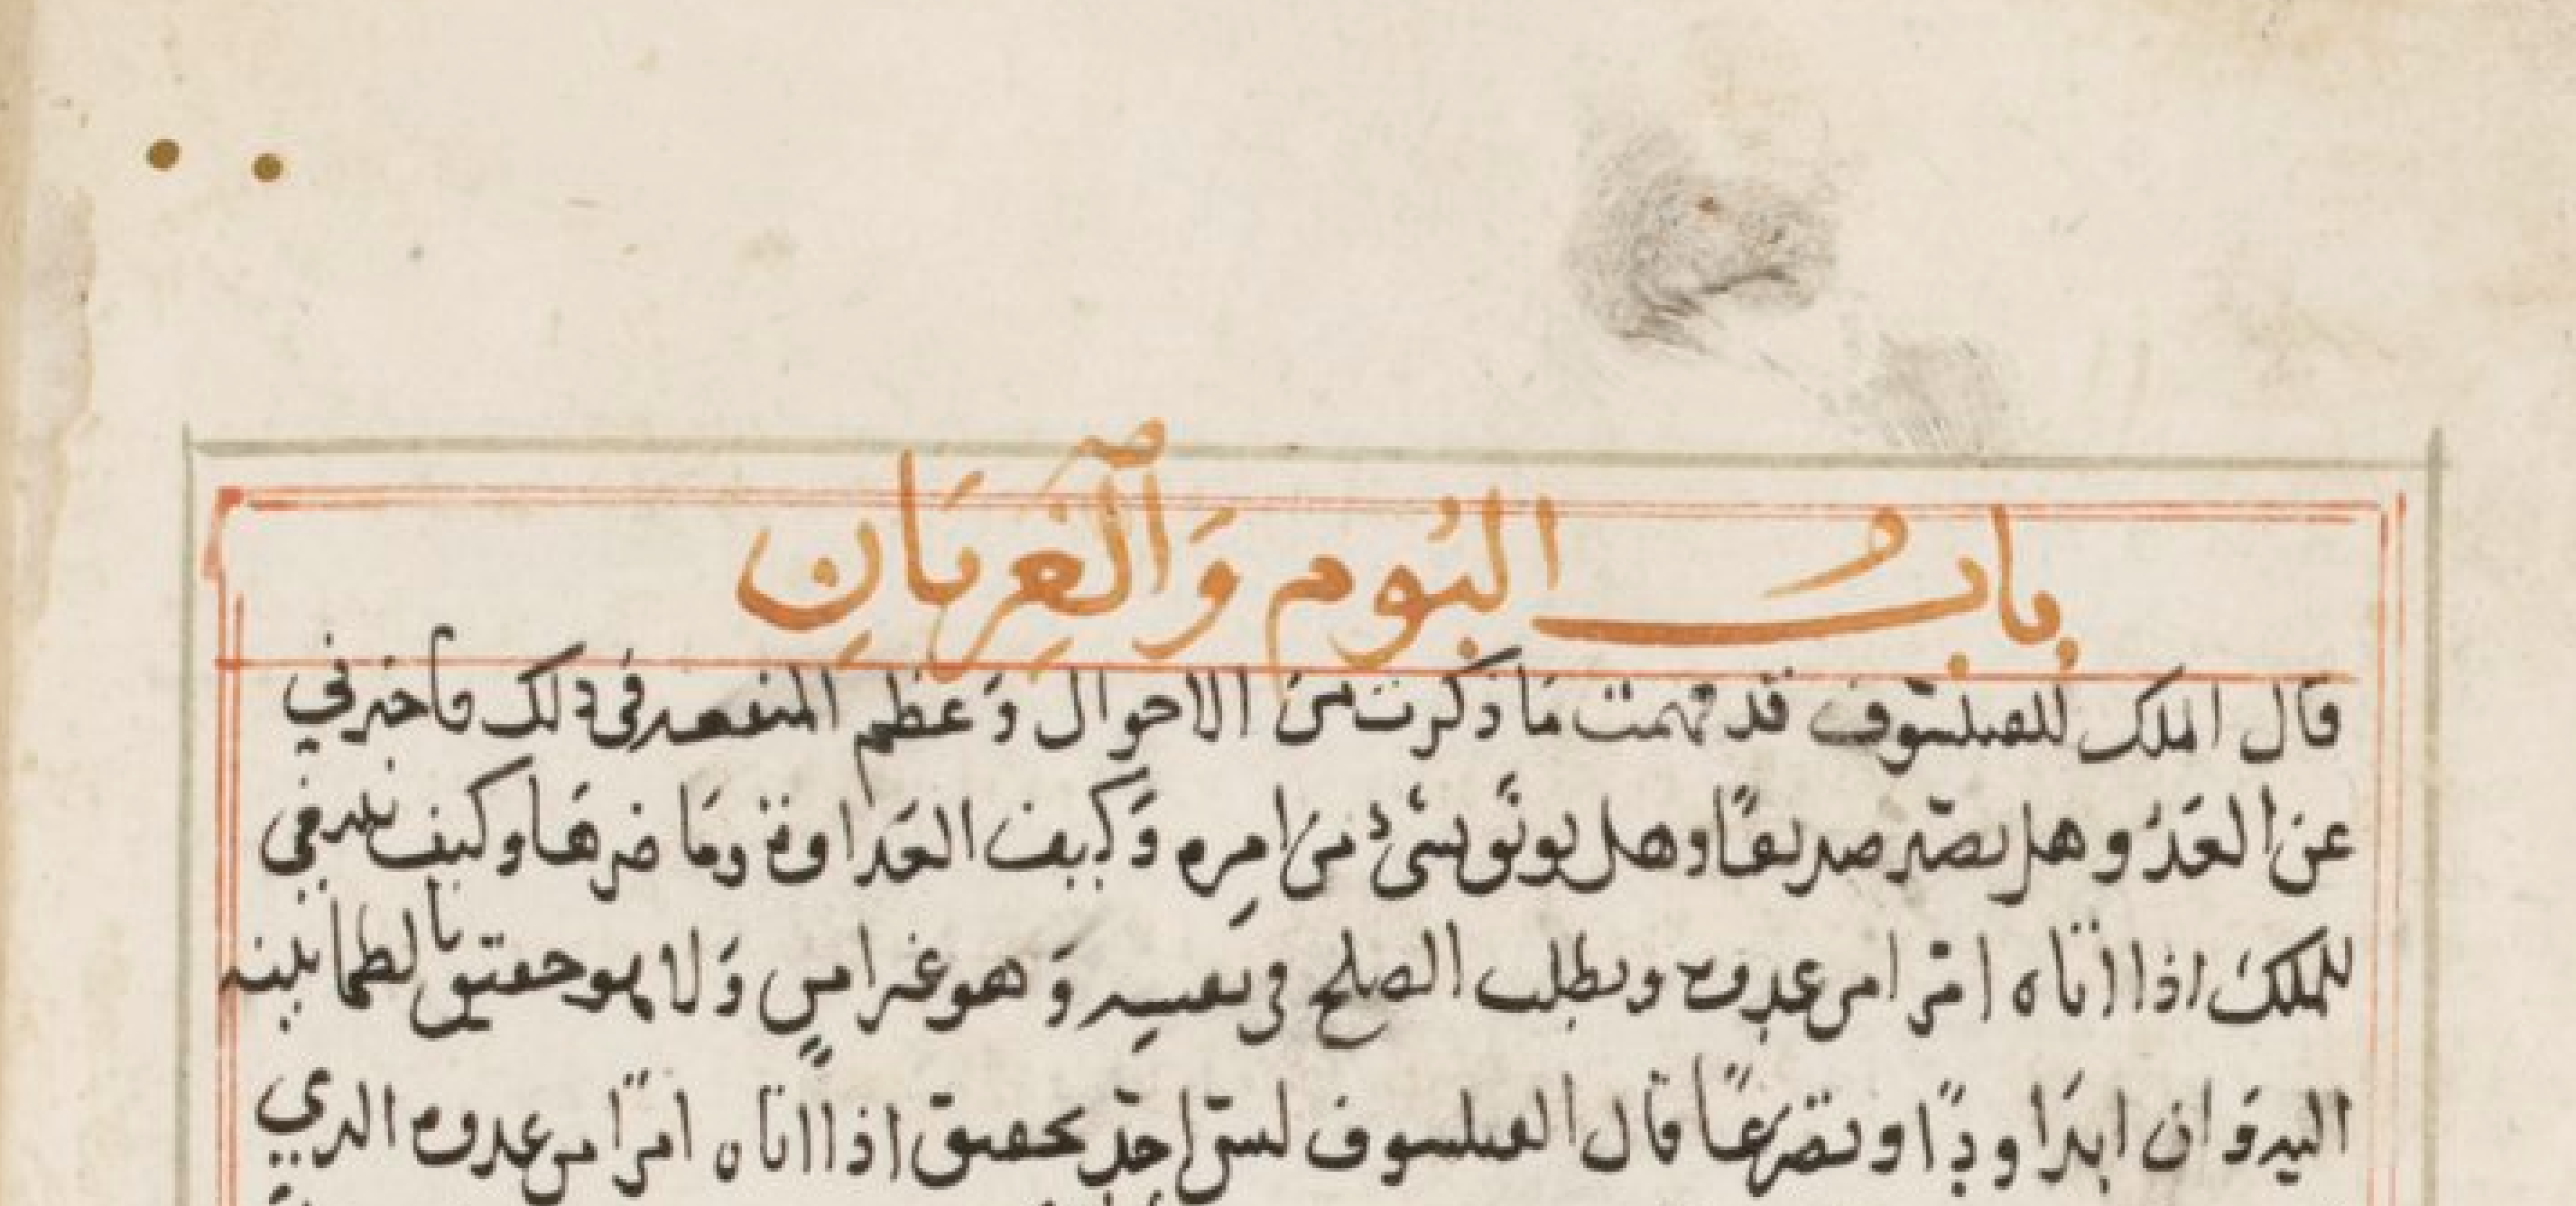 باب البُوم وَالغِربَانِ
قال الملك للفيلسوف قد فهمت مَا ذكرت من الاحوال وَعظم المنفعه في ذلك فاخبرني
عن العَدُو وهل يصير صديقًا وهل يوثق بشئ من امرِه وَكيف العَداوة ومَا ضرهَا وكيف ينبغي
للملك اذا اتاه امر من عدوه ويطلب الصلح في نفسِه وَهو غير امين وَلا هو حقيق بالطمانينه
اليه وَان ابدَا ودًا وتضرعًا قال الفيلسوف ليس احد بحقيق اذا اتاه امر من عدوه الذي